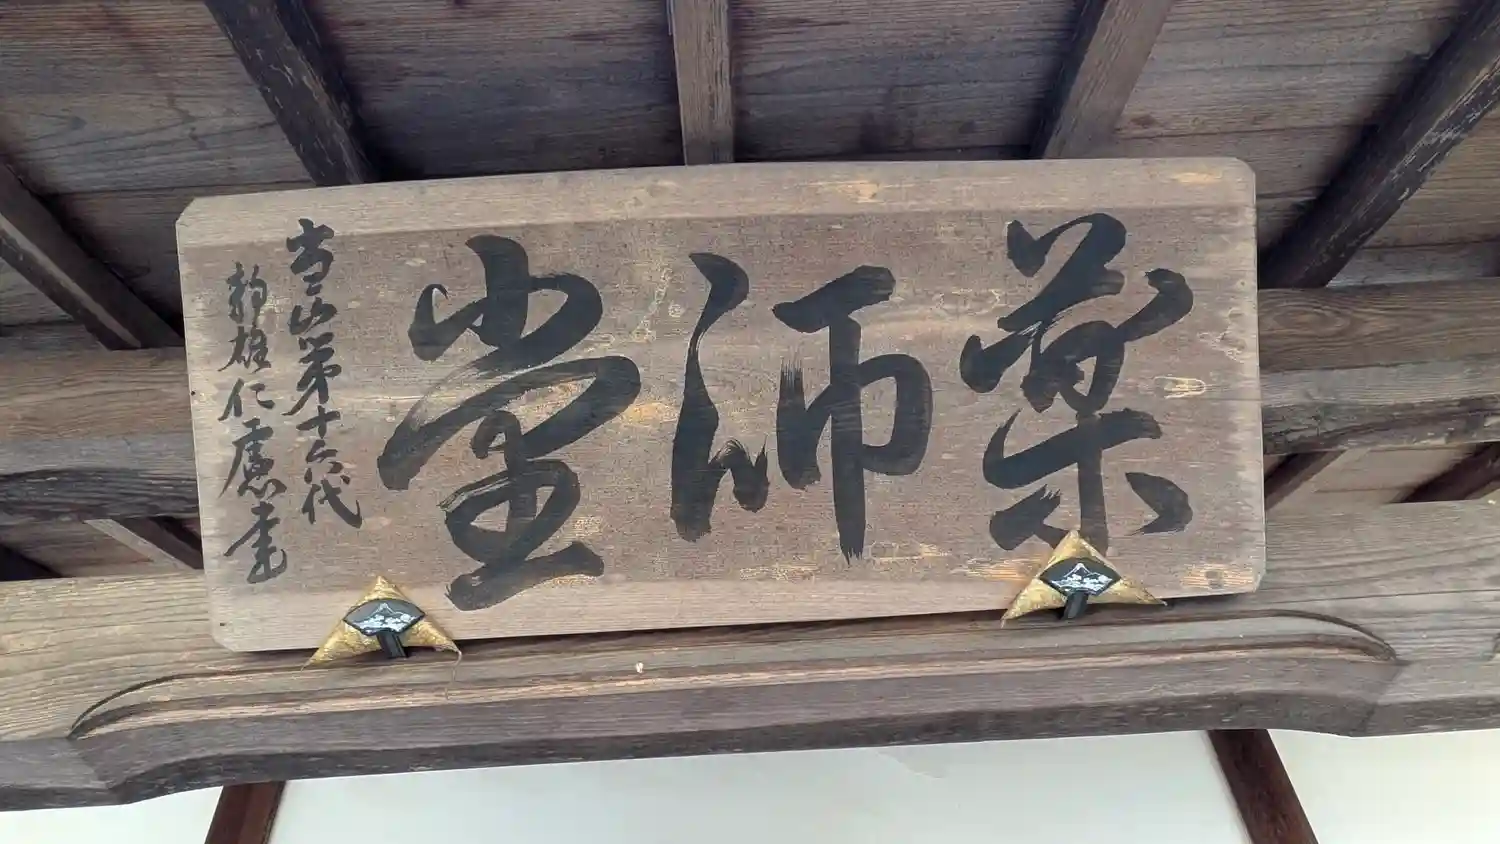 薬師堂
当山第十六代
静雄仁慮書